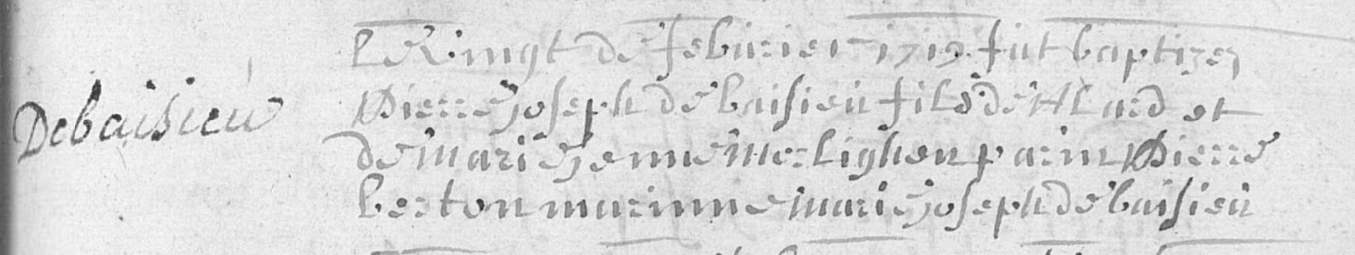 Debaisieu
le vingt de febvrier 1719 fut baptizez
Pierre Joseph de baisieu fils de Alard et
de Marie Jenne Merlighen parin Pierre
berton marinne Marie Joseph de baisieu